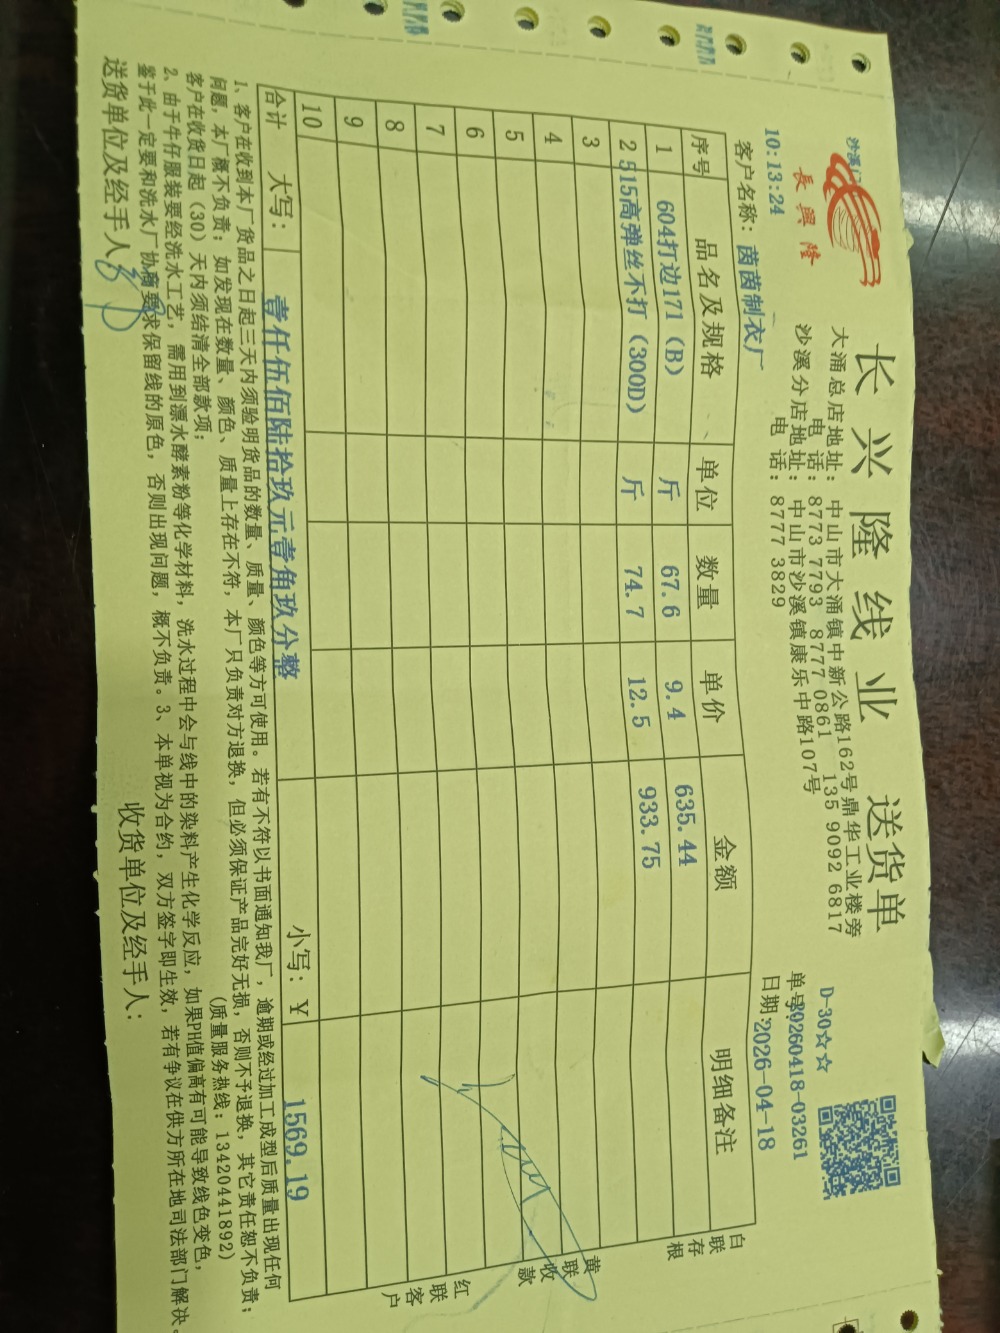 长兴隆线业 送货单
長興隆
大涌总店地址：中山市大涌镇中新公路162号鼎华工业楼旁
电话：8773 7793 8777 0861 135 9092 6817
沙溪分店地址：中山市沙溪镇康乐中路107号
电话：8777 3829
D-30☆☆
单号:20260418-03261
10:13:24
日期:2026-04-18
客户名称：茵茵制衣厂
序号 品名及规格 单位 数量 单价 金额 明细备注
1 604打边171（B） 斤 67.6 9.4 635.44
2 515高弹丝不打（300D） 斤 74.7 12.5 933.75
3
4
5
6
7
8
9
10
合计 大写： 壹仟伍佰陆拾玖元壹角玖分整 小写：￥ 1569.19
白联存根
黄联收款
红联客户
1、客户在收到本厂货品之日起三天内须验明货品的数量、质量、颜色等方可使用。若有不符以书面通知我厂，逾期或经过加工成型后质量出现任何
问题，本厂概不负责；如发现在数量、颜色、质量上存在不符，本厂只负责对方退换，但必须保证产品完好无损，否则不予退换，其它责任恕不负责；
客户在收货日起（30）天内须结清全部款项； （质量服务热线：13420441892）
2、由于牛仔服装要经洗水工艺，需用到漂水酵素粉等化学材料，洗水过程中会与线中的染料产生化学反应，如果PH值偏高有可能导致线色变色，
鉴于此一定要和洗水厂协商要求保留线的原色，否则出现问题，概不负责。3、本单视为合约，双方签字即生效，若有争议在供方所在地司法部门解决。
送货单位及经手人： 收货单位及经手人：